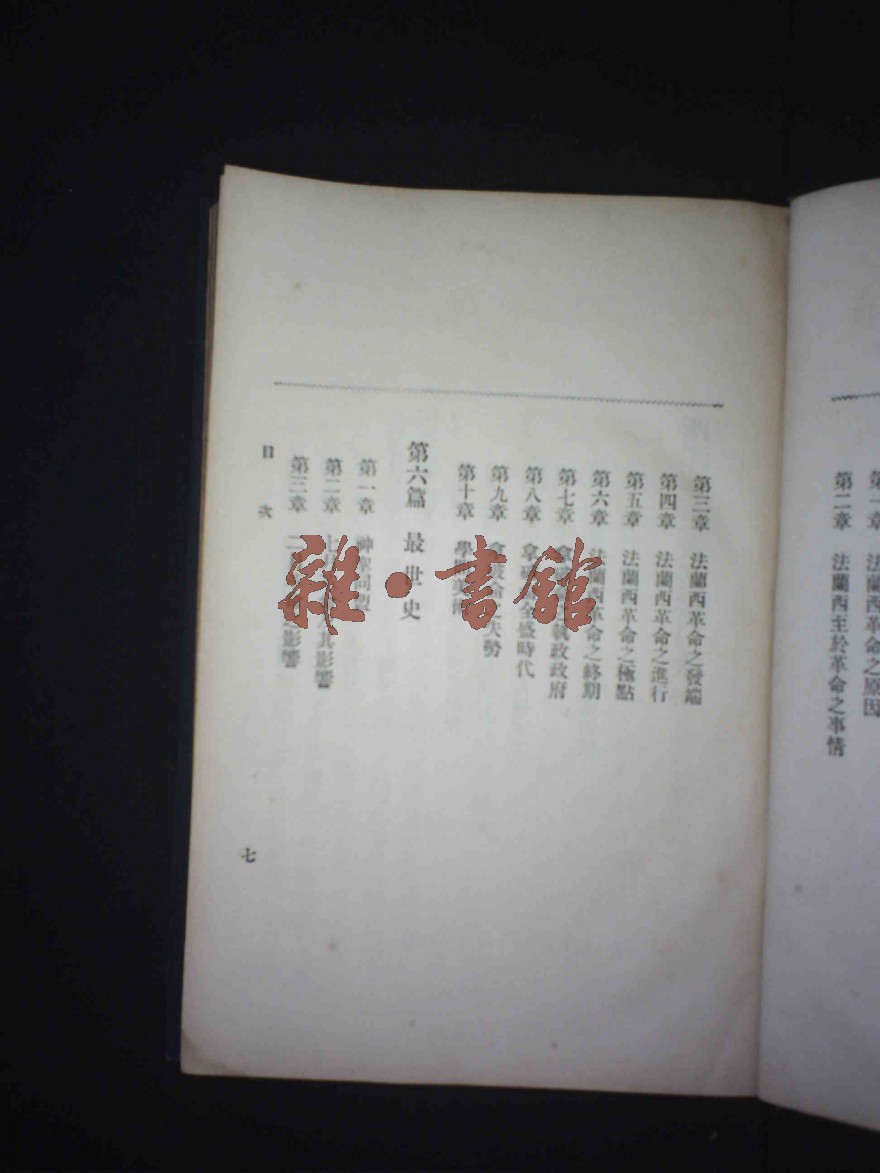 第一章 法蘭西革命之原因
第二章 法蘭西至於革命之事情
第三章 法蘭西革命之發端
第四章 法蘭西革命之進行
第五章 法蘭西革命之極點
第六章 法蘭西革命之終期
第七章 拿 執政政府
第八章 拿破 全盛時代
第九章 拿破侖之失勢
第十章 學
第六篇 最世史
第一章 神聖同盟
第二章 七 其影響
第三章 二 影響
目次
七
雜·書館